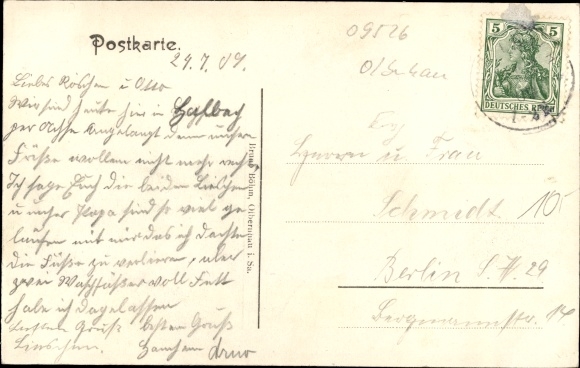 Postkarte.
29.7.09.
Liebes Röschen u Otto
Wir sind heute hier in Hallbach
per Achse angelangt denn unsere
Füße wollen nicht mehr recht
Ich sage Euch die beiden Lieschen
u unser Papa sind so viel ge
laufen mit mir das ich dachte
die Füße zu verlieren, aber
zwei Waschfässer voll Fett
habe ich dagelassen
Gruß besten Gruß
Lieschen. Arno
Bruno Böhm, Olbernhau i. Sa.
09526
Olbernhau
Herrn u Frau
Schmidt
10
Berlin S.W. 29
Bergmannstr. 14
5 5
DEUTSCHES REICH